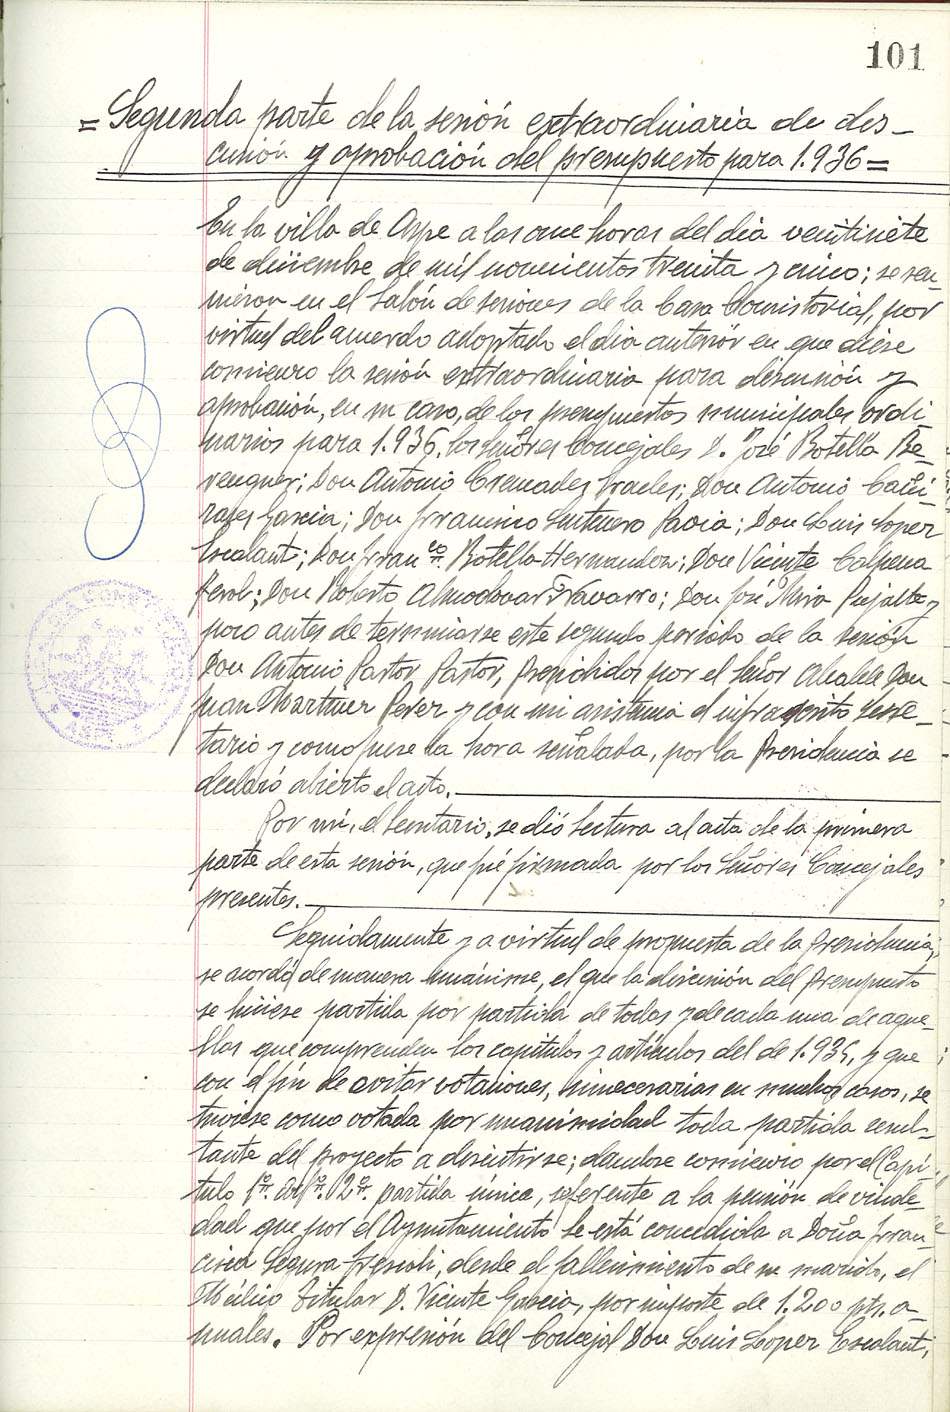 101
= Segunda parte de la sesión extraordinaria de dis-
cusión y aprobación del presupuesto para 1.936 =
En la villa de Aspe a las once horas del dia veintisiete
de diciembre de mil novecientos treinta y cinco; se reu-
nieron en el Salón de sesiones de la Casa Consistorial, por
virtud del acuerdo adoptado el dia anterior en que diese
comienzo la sesión extraordinaria para discusión y
aprobación, en su caso, de los presupuestos municipales ordi-
narios para 1.936, los señores Concejales D. José Botella Be-
renguer; Don Antonio Cremades Prades; Don Antonio Cañi-
zares Garcia; Don Francisco Santenero Pavia; Don Luis Lopez
Escalant; Don Franco. Botella Hernandez; Don Vicente Calpena
Perol; Don Roberto Almodovar Navarro; Don José Mira Pujalte y
poco antes de terminarse este segundo periodo de la sesión
Don Antonio Pastor Pastor, Presididos por el Señor Alcalde Don
Juan Martinez Perez y con mi asistencia el infrascrito Secre-
tario y como fuese la hora señalada, por la Presidencia se
declaró abierto el acto.
Por mi, el Secretario, se dió lectura al acta de la primera
parte de esta sesión, que fué firmada por los Señores Concejales
presentes.
Seguidamente y a virtud de propuesta de la Presidencia,
se acordó de manera unánime, el que la discusión del Presupuesto
se hiciese partida por partida de todas y de cada una de aque-
llas que comprenden los capitulos y articulos del de 1.935, y que
con el fin de evitar votaciones, innecesarias en muchos casos, se
tuviese como votada por unanimidad toda partida resul-
tante del proyecto a discutirse; dandose comienzo por el Capí-
tulo 1º. Artº. 2º. partida única, referente a la pensión de viude-
dad que por el Ayuntamiento le está concedida a Doña Fran-
cisca Segura, desde el fallecimiento de su marido, el
Médico Titular D. Vicente Garcia, por importe de 1.200 pts. a-
nuales. Por expresión del Concejal Don Luis Lopez Escalant,